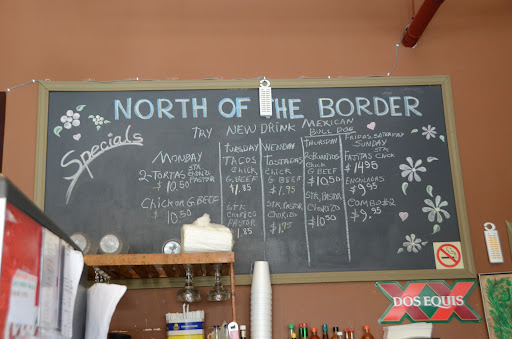 NORTH OF THE BORDER
Specials
TRY NEW DRINK MEXICAN
BULL DOG
MONDAY
2-TORTAS
PASTOR
$10.50
Chicken G. BEEF
$10.50
TUESDAY
TACOS
Chick
G. BEEF
$1.85
PASTOR
$1.85
TOSTADAS
Chick
G BEEF
$1.75
STK, PASTOR
Chorizo
$1.75
THURSDAY
Chick
G. BEEF
$10.50
STK, PASTOR
Chorizo
$10.50
FRIDAY SATURDAY
SUNDAY
STK
FAJITAS Chick
$14.95
ENCHILADAS
$9.95
COMBO #2
$9.95
XX
DOS EQUIS